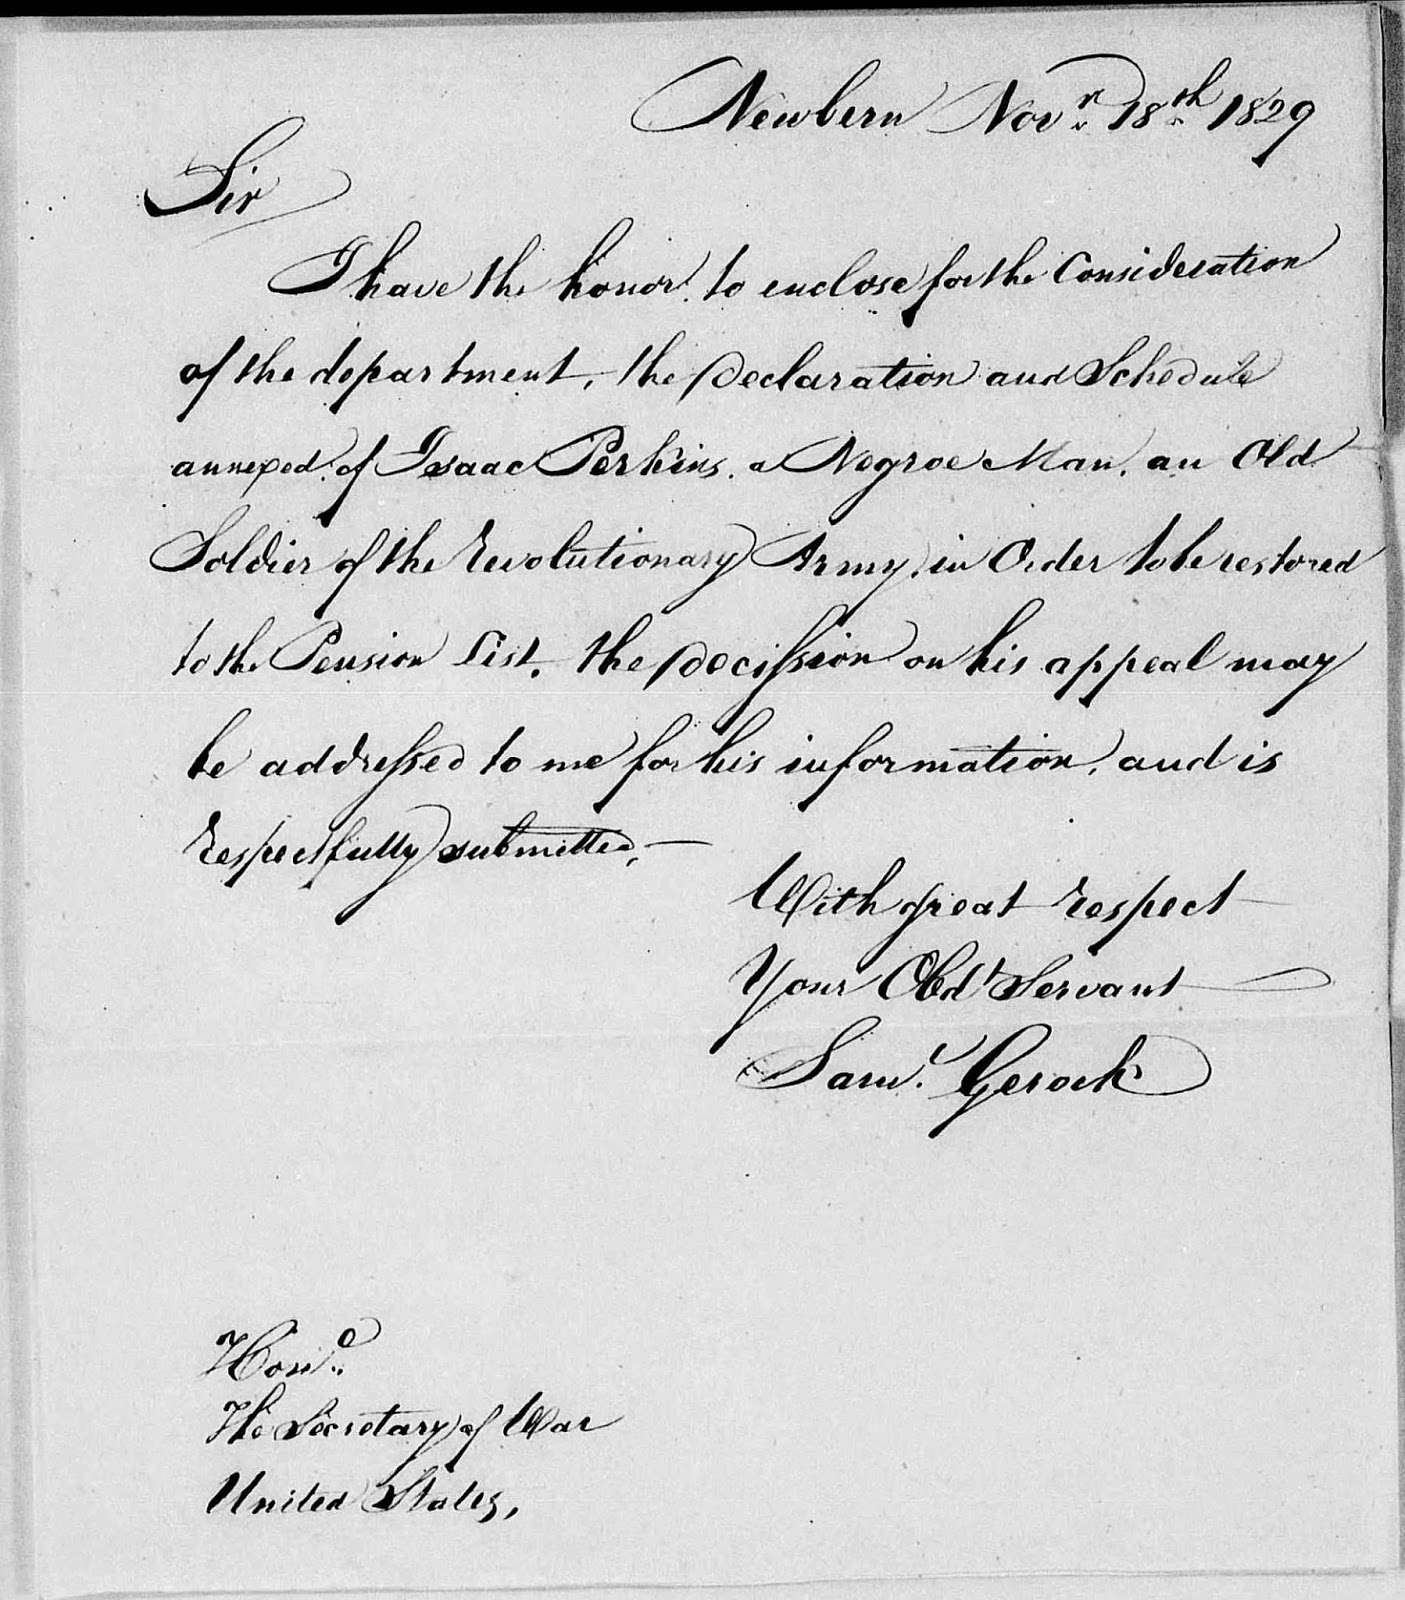 Newbern Novr 18th 1829
Sir
I have the honor to enclose for the Consideration
of the department, the Declaration and Schedule
annexed of Isaac Perkins a Negroe Man, an Old
Soldier of the Revolutionary Army, in Order to be restored
to the Pension List. the Decission on his appeal may
be addressed to me for his information, and is
respectfully submitted,—
With great respect
Your Obdt Servant
Saml. Gerock
Honle
The Secretary of War
United States,